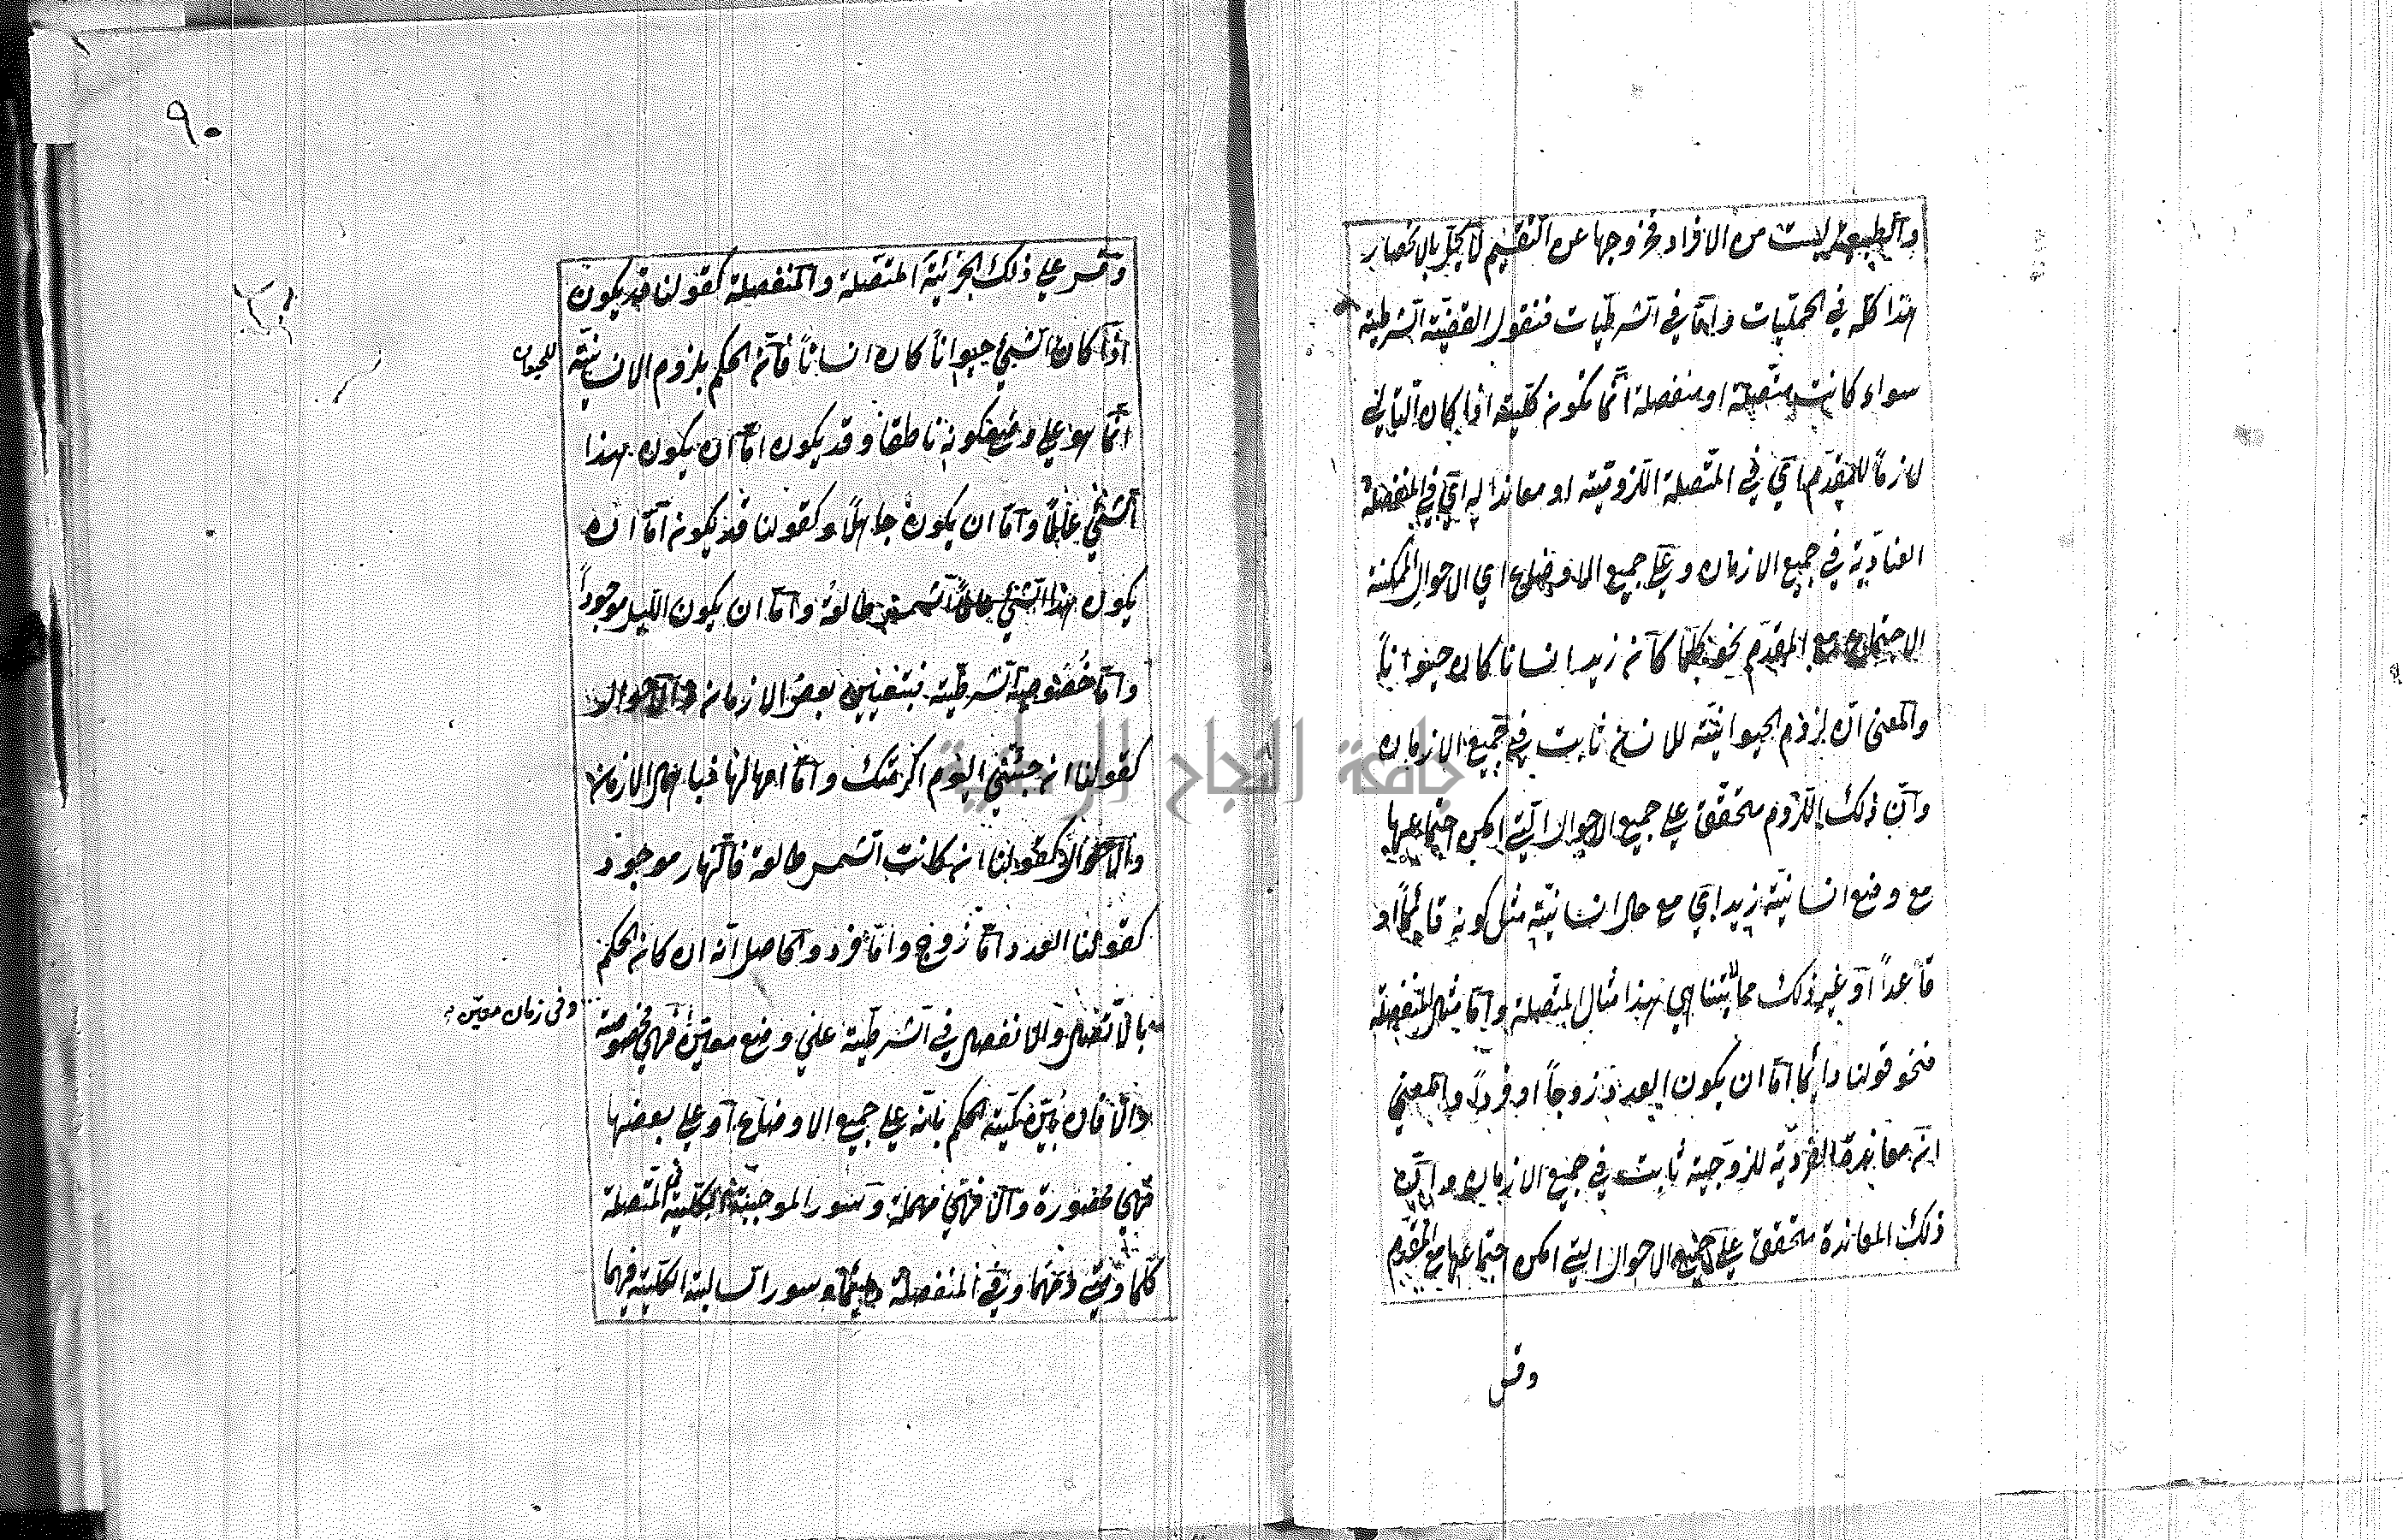 والطبيعة ليست من الافراد فخروجها عن التقسيم لا يخل بالانحصار
هذا كله في الحمليات واما في الشرطيات فنقول القضية الشرطية
سواء كانت متصلة او منفصلة انما تكون كلية اذا كان التالي
لازماً للمقدم اي في المتصلة اللزومية او معاندا له اي في المنفصلة
العنادية في جميع الازمان وعلى جميع الاوضاع اي الاحوال الممكنة
الاجتماع مع المقدم نحو كلما كان زيد انسانا كان حيواناً
والمعنى ان لزوم الحيوانية للانسان ثابت في جميع الازمان
وان ذلك اللزوم متحقق على جميع الاحوال التي امكن اجتماعها
مع وضع انسانية زيد اي مع حال انسانية مثل كونه قائماً او
قاعداً او غير ذلك مما لا يتناهي هذا مثال المتصلة واما مثال المنفصلة
فنحو قولنا دائما اما ان يكون العدد زوجاً او فرداً والمعنى
ان معاندة الفردية للزوجية ثابت في جميع الازمان وان
ذلك المعاندة متحقق على جميع الاحوال التي امكن اجتماعها مع المقدم
وقس
٩٠
وقس على ذلك الجزئية المتصلة والمنفصلة كقولنا قد يكون
اذا كان الشيئ حيواناً كان انساناً فان الحكم بلزوم الانسانية
للحيوان
انما هو على وضع كونه ناطقا وقد يكون اما ان يكون هذا
الشيئ عالماً واما ان يكون جاهلاً وكقولنا قد يكون اما ان
يكون هذا الشيئ الشمس طالعة واما ان يكون الليل موجوداً
واما خصوصية الشرطية فبتعيين بعض الازمان والاحوال
كقولنا ان جئتني اليوم اكرمتك واما اهمالها فباهمال الازمان
والاحوال كقولنا ان كانت الشمس طالعة فالنهار موجود
كقولنا العدد اما زوج واما فرد والحاصل انه ان كان الحكم
بالاتصال والانفصال في الشرطية على وضع معين فهي مخصوصة
وفى زمان معين
والا فان بين كمية الحكم بانه على جميع الاوضاع او على بعضها
فهي محصورة والا فهي مهملة وسور الموجبة الكلية في المتصلة
كلما ومتى ومهما وفي المنفصلة دائما وسور السالبة الكلية فيهما
جامعة النجاح الوطنية